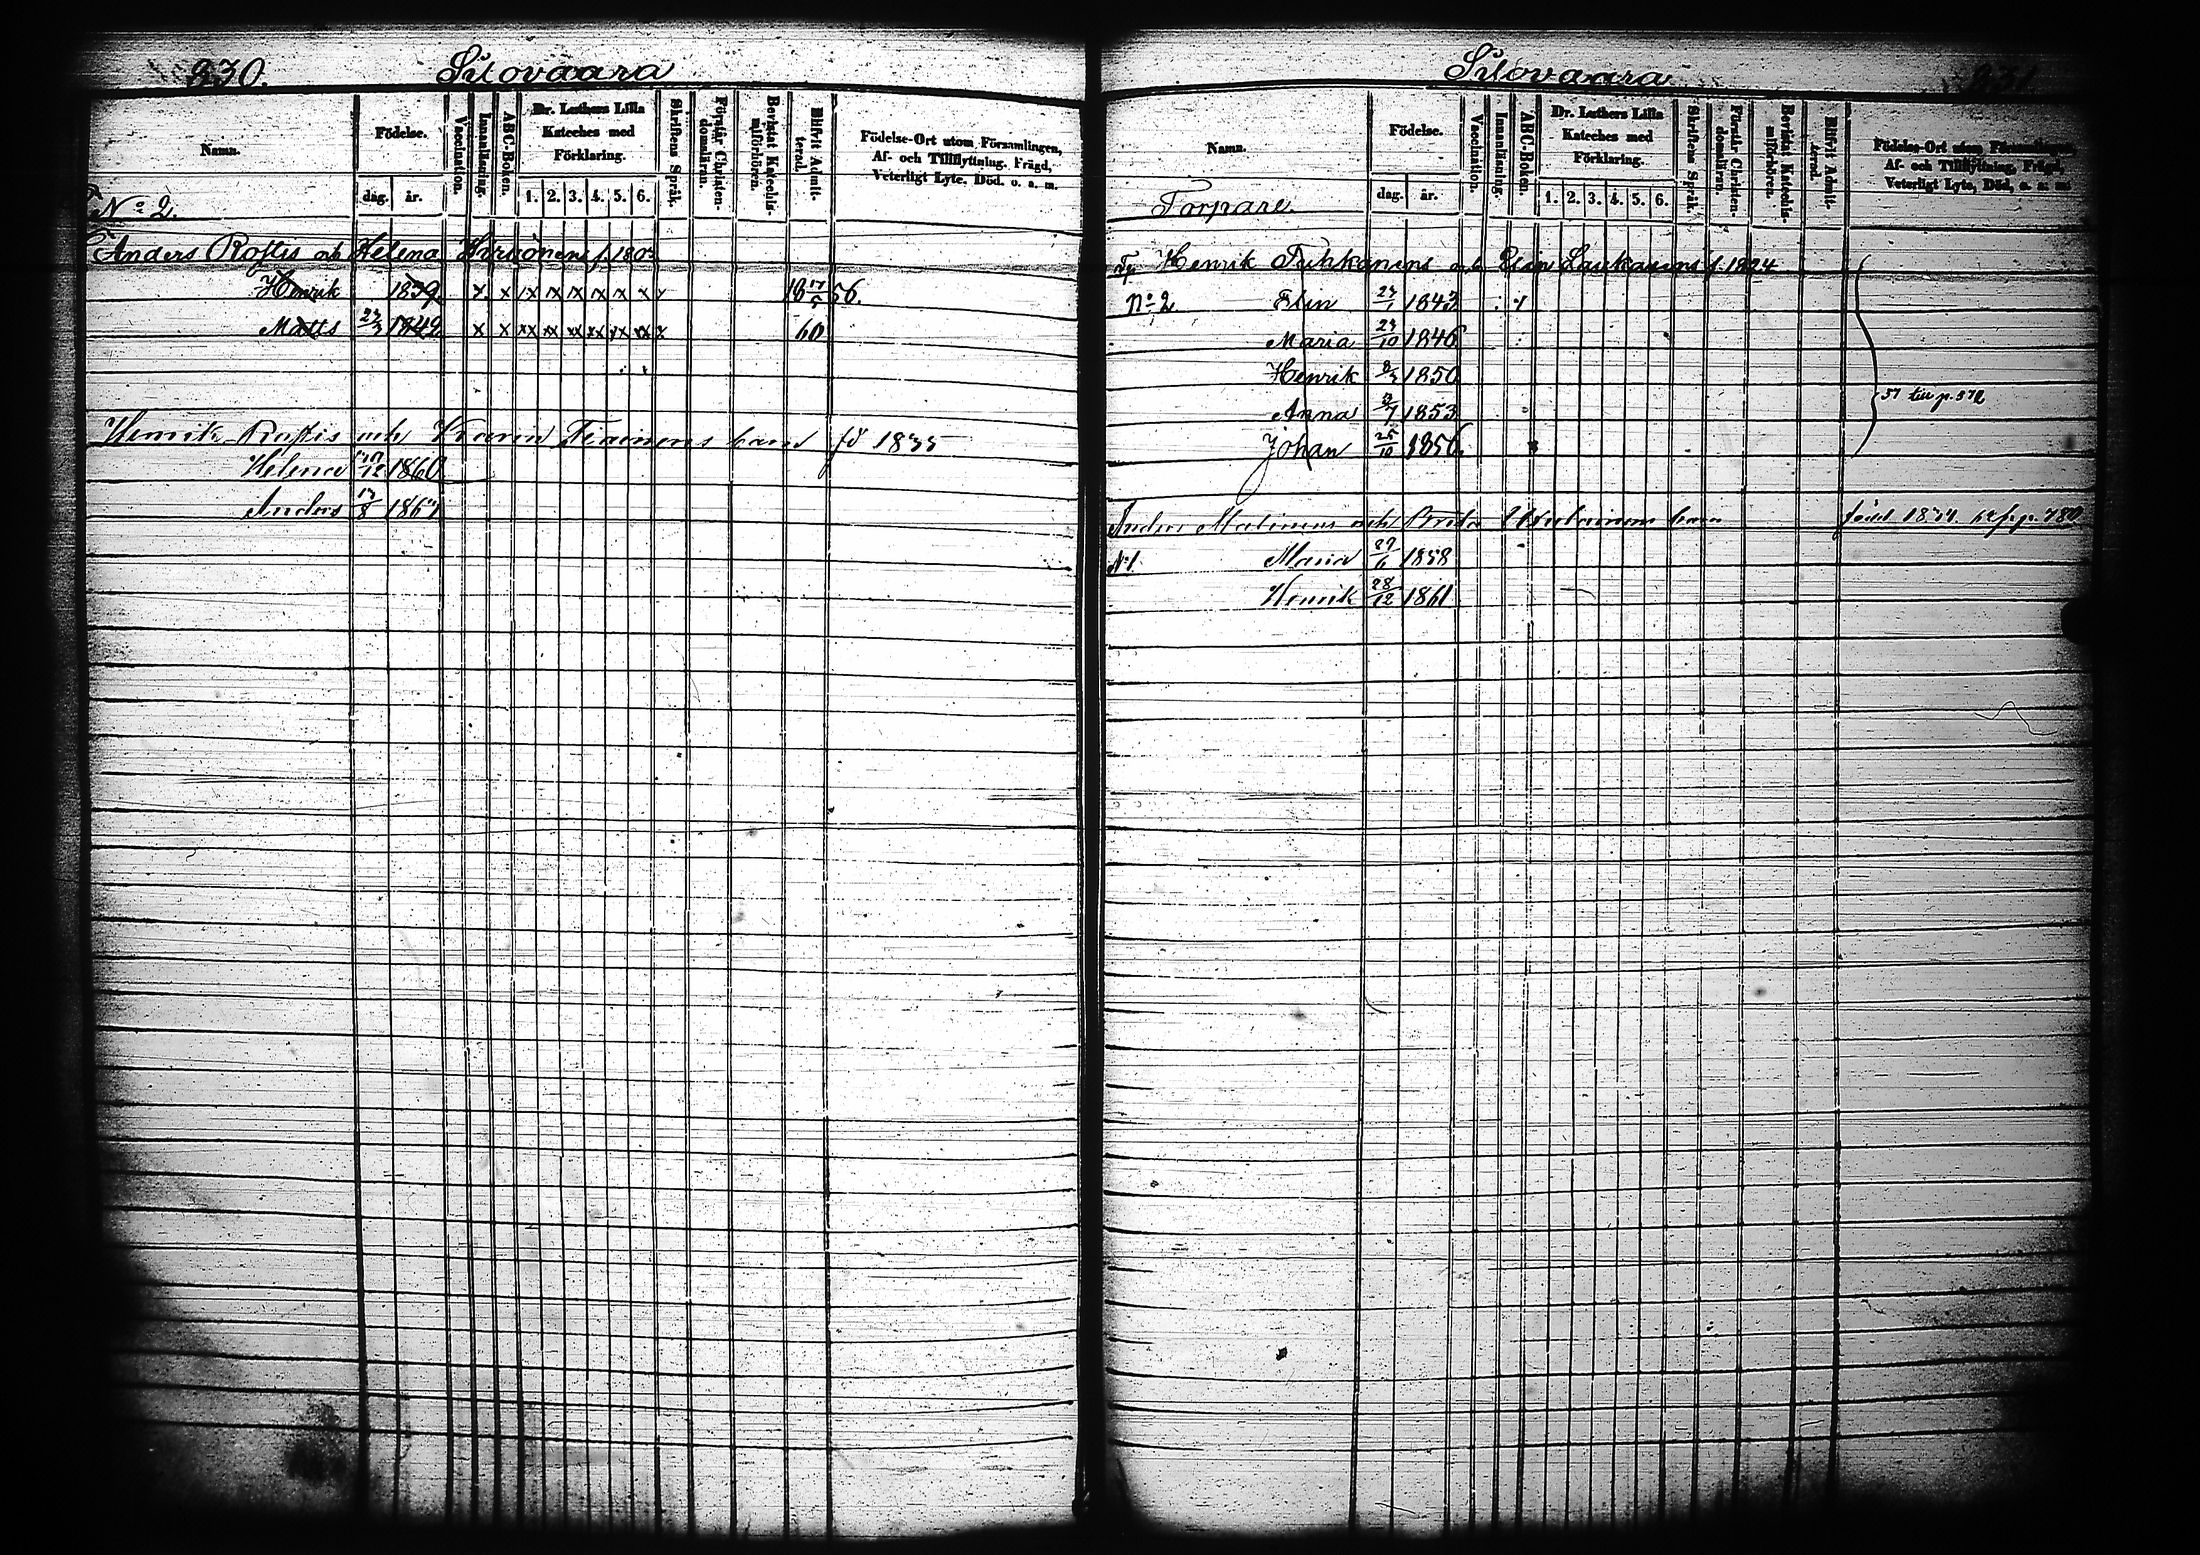 230. Suovaara
Namn. Födelse. dag. år. Vaccination. Innanläsning. ABC-Boken. Dr. Luthers Lilla Kateches med Förklaring. 1. 2. 3. 4. 5. 6. Skriftens Språk. Förstår Christendomsläran. Bevistat Katechismiförhören. Blifvit Admitterad. Födelse-Ort utom Församlingen, Af- och Tillflyttning. Frägd, Veterligt Lyte, Död. o. a. m.
No 2.
Anders Rostis och Helena f. 1803
Henrik 1839. x x x x x x x x x 18 17/5 56.
Matts 23/3 1842 x x xx xx xx xx xx xx x 60
Henrik Rostis och Karin barn fö 1835
Helena /12 1860
Anders 13/8 1864
Suovaara 231
Namn. Födelse. dag. år. Vaccination. Innanläsning. ABC-Boken. Dr. Luthers Lilla Kateches med Förklaring. 1. 2. 3. 4. 5. 6. Skriftens Språk. Förstår Christendomsläran. Bevistat Katechismiförhören. Blifvit Admitterad. Födelse-Ort utom Församlingen, Af- och Tillflyttning, Frägd, Veterligt Lyte, Död, o. a. m.
Torpare.
Henrik Tuhkanens och Elin Laukanens f. 1824
No 2 Elin 23/1 1843
Maria 23/10 1846
Henrik 1850
Anna 3/7 1853
57 till p. 572
Johan 25/10 1856.
Anders Matinens och Brita barn född 1834
No 1 Maria 27/6 1858
Henrik 28/12 1861